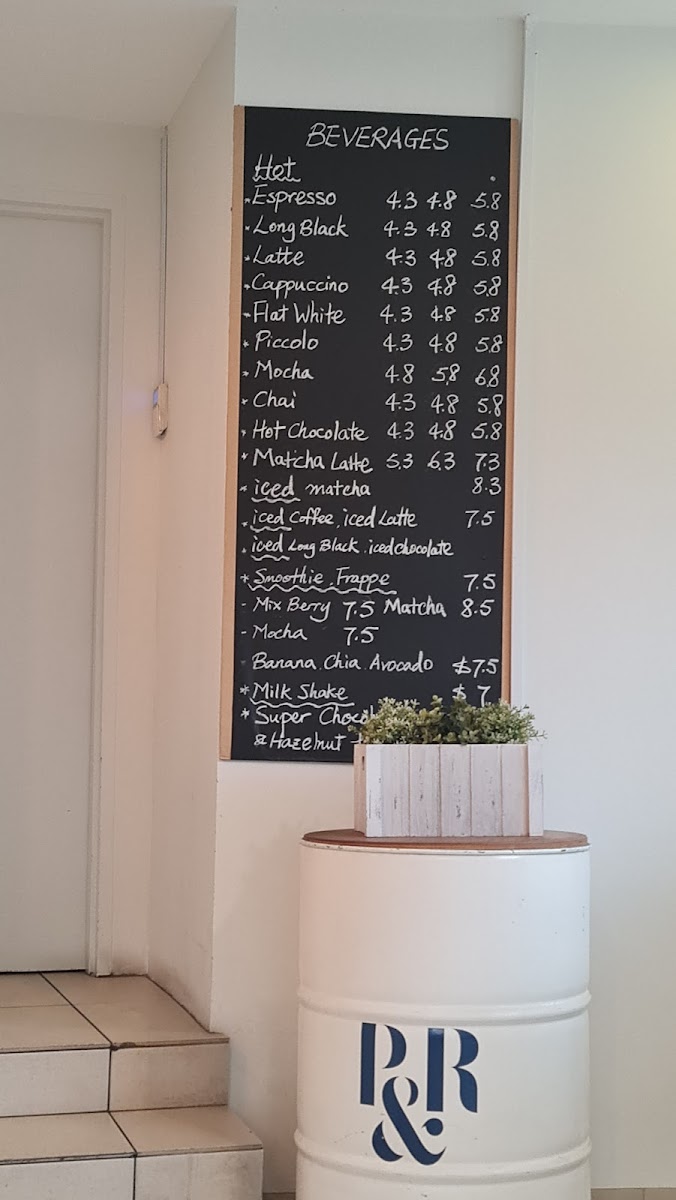 BEVERAGES
Hot
* Espresso 4.3 4.8 5.8
* Long Black 4.3 4.8 5.8
* Latte 4.3 4.8 5.8
* Cappuccino 4.3 4.8 5.8
* Flat White 4.3 4.8 5.8
* Piccolo 4.3 4.8 5.8
* Mocha 4.8 5.8 6.8
* Chai 4.3 4.8 5.8
* Hot Chocolate 4.3 4.8 5.8
* Matcha Latte 5.3 6.3 7.3
* iced matcha 8.3
* iced Coffee, iced Latte 7.5
* iced Long Black, iced chocolate
* Smoothie, Frappe 7.5
- Mix Berry 7.5 Matcha 8.5
- Mocha 7.5
- Banana, Chia, Avocado $7.5
* Milk Shake $7
* Super
& Hazelnut
P&R